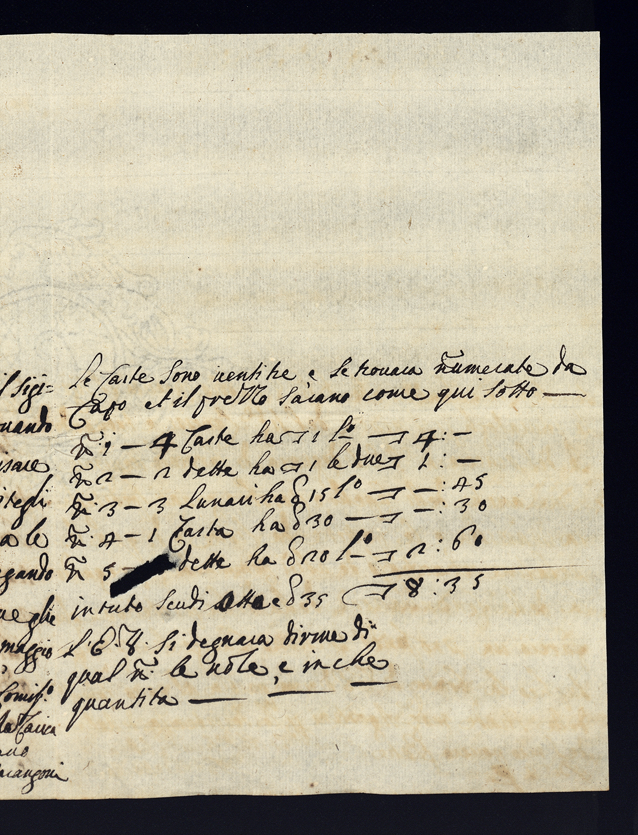 il sigi=
uando
usare
itegli
a le
gando
ue glie
maggio
Comis.o
la Cauca
ano
arcangoni
Le Carte sono uentitre, e le trouara ñumerate da
Capo et il prezzo saiano come qui sotto —
ñ: 1 — 4 Carte ha 1 l'o — 4: —
ñ: 2 — 2 dette ha 1 le due 1: —
ñ: 3 — 3 Lunari ha 15 l'o — : 45
ñ: 4 — 1 Carta ha 30 — : 30
ñ: 5 — dette ha 20 l'o — 2: 60
8: 35
in tuto scudi otto e 35
L'E: V: si degnara dirme di
qual ñ: le uole, e in che
quantita —